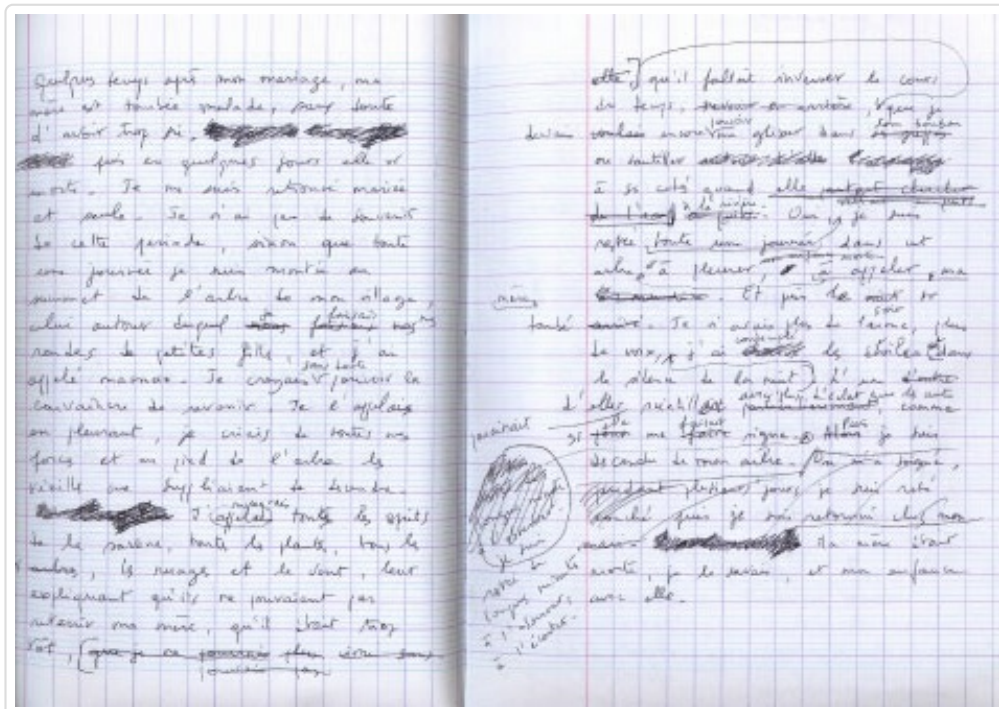 Quelques temps après mon mariage, ma
mère est tombée malade, sans doute
d'avoir trop ri,
puis en quelques jours elle est
morte. Je me suis retrouvée mariée
et seule. Je n'ai peu de souvenir
de cette période, sinon que toute
une journée je suis montée au
sommet de l'arbre de mon village,
celui autour duquel nous faisions nos
rondes de petites filles, et j'ai
appelé maman. Je croyais sans doute pouvoir la
convaincre de revenir. Je l'appelais
en pleurant, je criais de toutes mes
forces et au pied de l'arbre les
vieilles me suppliaient de descendre.
J' toutes les esprits
de la savane, toutes les plantes, tous les
arbres, les nuages et le vent, leur
expliquant qu'ils ne pouvaient pas
retenir ma mère, qu'il était trop
tôt, que je ne pourrais plus vivre sans
pouvais pas
elle, qu'il fallait inverser le cours
du temps, revenir en arrière, que je
devais voulais encore pouvoir me glisser dans
ou sautiller
à ses côtés quand elle partait chercher
de l'eau. Oui, je suis
restée toute une journée, dans cet
arbre, à pleurer, à appeler, ma
mère. Et puis le soir est
tombé. Je n'avais plus de larme, plus
de voix, j'ai les étoiles dans
le silence de la nuit. L'une
d'elles d'éclat que les autres comme
si elle me faisait signe. Puis je suis
descendue de mon arbre. On m'a soignée,
pendant plusieurs jours je suis resté
couché puis je suis retourné chez mon
Ma mère était
morte, je le savais, et mon enfance
avec elle.
paraissait
je suis
restée de
longues minutes
à l'observer,
à l'écouter.